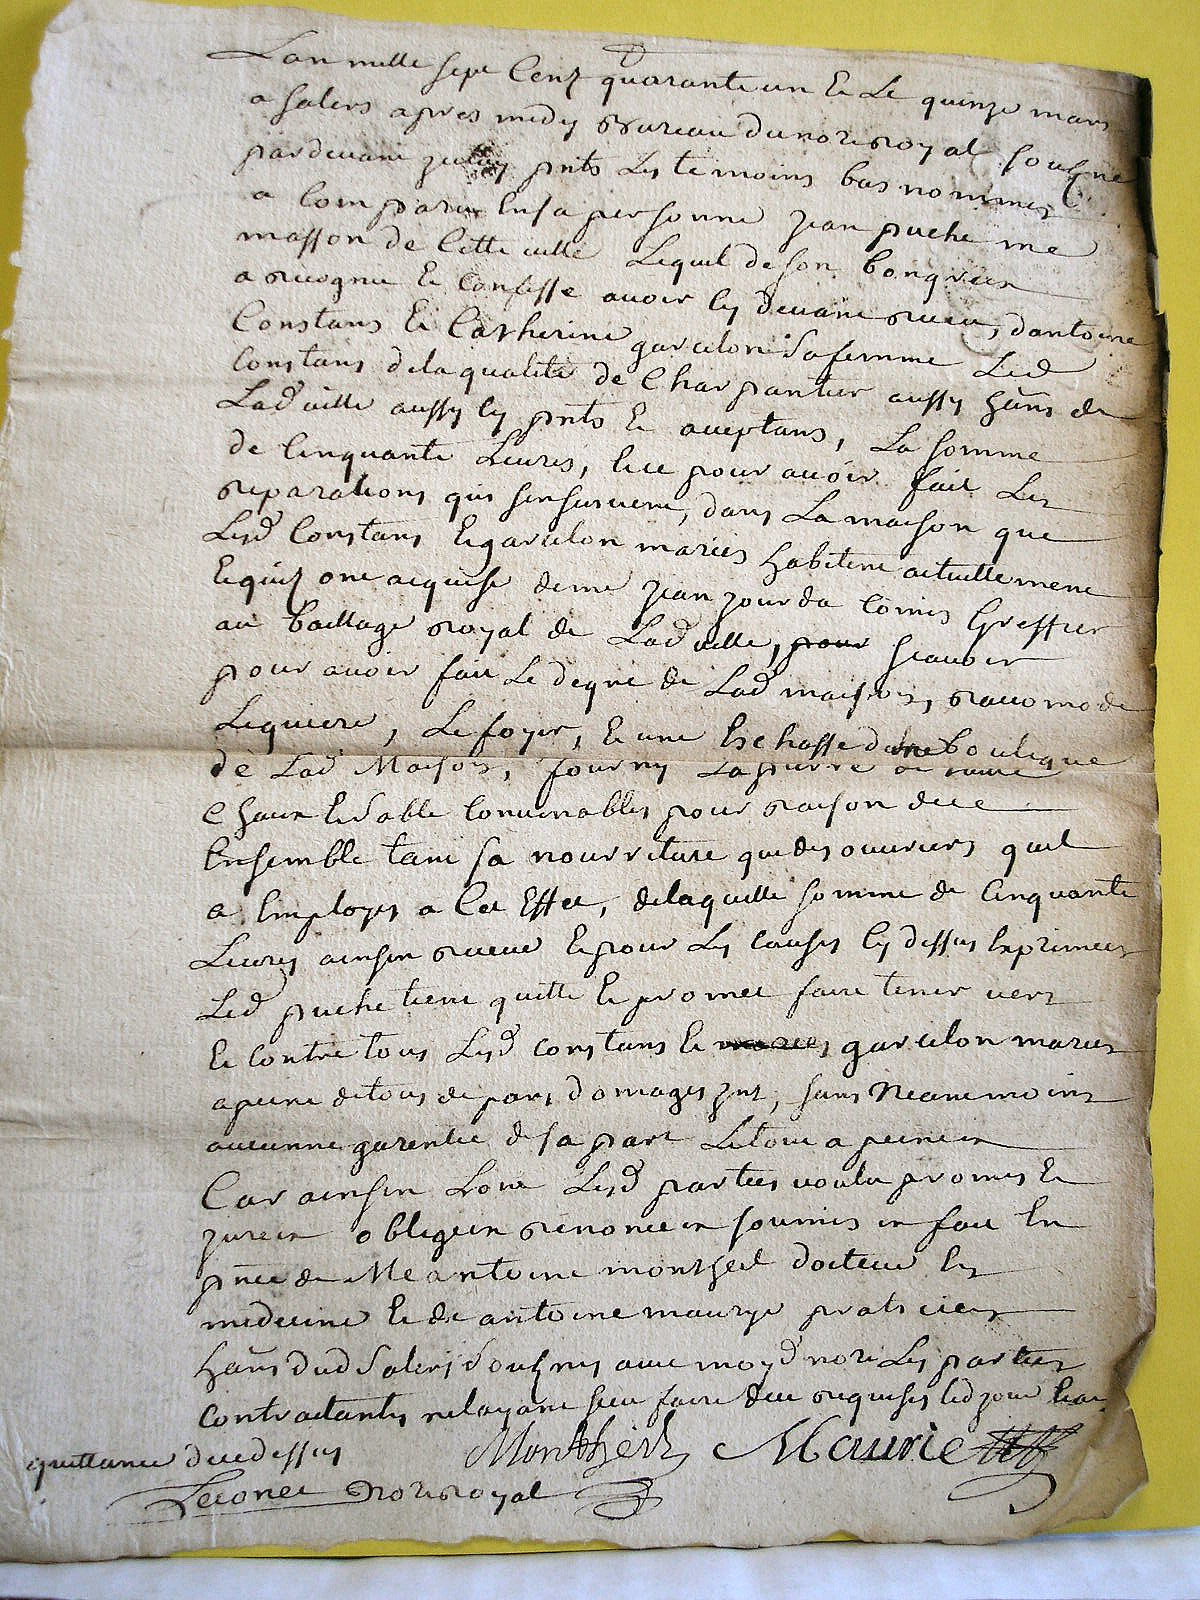 Lan mille sept Cens quarante un Et Le quinze mars
a salers apres midy Bureau du nore Royal sousigné
pardevant puts Les temoins bas nommes
a Comparu En sa personne jean puche me
masson de Cette ville Lequel de son bon gré
a recognu Et Confesse avoir Cy devant receu, dantoine
Constans Et Catherine garcelon sa femme Led
Constans de la qualité de Charpantier aussy hans de
Lad ville aussy Cy pnts Et aceptans, La somme
de Cinquante Livres, Et ce pour avoir fait Les
reparations qui sensuivent, dans La maison que
Lesd Constans Et garcelon maries habitent actuellement
Et quils ont acquise de me jean jourda Comis Greffier
au bailliage Royal de Lad ville, pour scavoir
pour avoir fait Le degré de Lad maison, racomode
Leguiere, Le foyer, Et une Eschasse dune boutique
de Lad Maison, fourny La pierre de taille
Chaux Et sable Convenables pour raison de ce
Ensemble tant sa nourriture que des ouvriers quil
a Employes a Cet Effet, de laquelle somme de Cinquante
Livres ainsin receue Et pour Les causes Cy dessus Exprimees
Led puche tient quitte Et promet faire tenir vers
Et Contre tous Lesd constans Et maries garcelon maries
a peine de tous depans domages jnt, sans Neantmoins
aucunne garentie de sa part Le tout a peine
Car ainsin Lont Lesd parties voulu promis Et
jure obligé renoncé soumis fait En
pnce de Me antoine montheil docteur En
medecine Et de antoine maurye praticien
hans dud Salers Sousignes avec moyd nore Les parties
contractantes nelayant sceu faire de ce requises led jour
quittance de ce dessus Montheil Maurie
Leconet nore royal